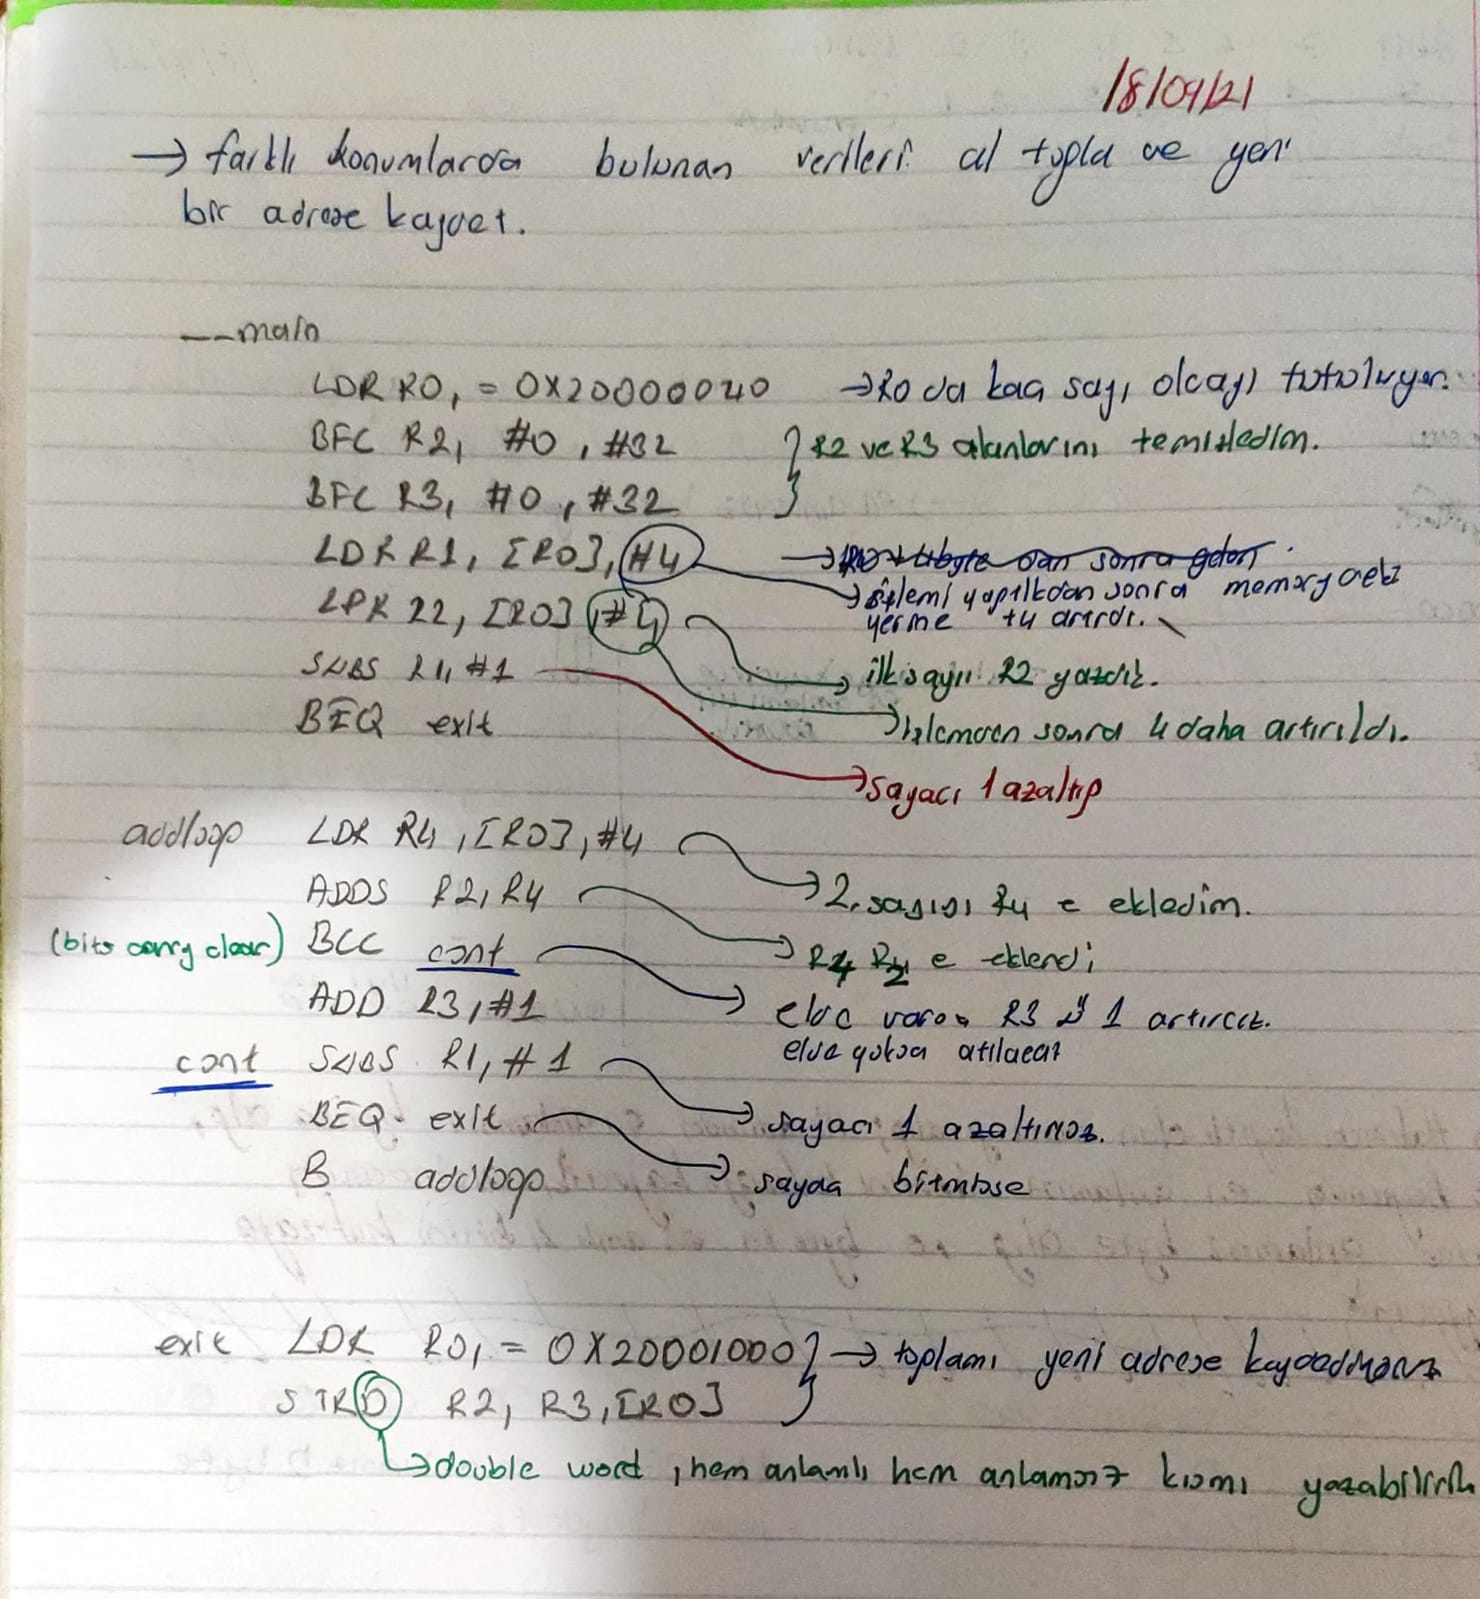 18/04/21
→ farklı konumlarda bulunan verileri al topla ve yeni
bir adrese kaydet.
__main
LDR R0, = 0X20000040 → R0 da kaç sayı olcağı tutuluyor.
BFC R2, #0, #32 } R2 ve R3 alanlarını temizledim.
BFC R3, #0, #32
LDR R1, [R0], #4 → R0 + 4byte dan sonra gelen
→ işlemi yapıldıkdan sonra memorydeki
yerine +4 artırdı.
LDR R2, [R0], #4 → ilk sayıyı R2 yazdık.
→ işlemden sonra 4 daha artırıldı.
SUBS R1, #1 → sayacı 1 azaltıp
BEQ exit
addloop LDR R4, [R0], #4 → 2. sayısı R4 e ekledim.
ADDS R2, R4 → R4 R2 e eklendi
(bits carry clear) BCC cont → elde varsa R3 ü 1 artırcız.
elde yoksa atılacak
ADD R3, #1
cont SUBS R1, #1 → sayacı 1 azaltırız.
BEQ exit → sayaç bitmişse
B addloop
exit LDR R0, = 0X20001000 } → toplamı yeni adrese
STRD R2, R3, [R0]
→ double word, hem anlamlı hem anlamsız kısmı yazabilirim